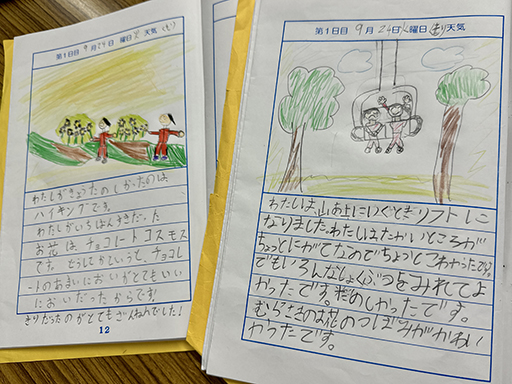 第1日目 9月24日 曜日 火 天気 くもり
わたしがきょうたのしかったのは、
ハイキングです。
わたしがいちばんすきだった
お花は、チョコレートコスモス
です。どうしてかというと、チョコレ
ートのあまいにおいがとてもいい
においだったからです!
きりだったのがとてもざんねんでした!
12
第1日目 9月24日 火曜日 天気
わたしは山の上にいくときリフトに
なりました。わたしはたかいところが
ちょっとにがてなのでちょっとこわかったです。
でもいろんなしょくぶつをみれてよ
かったです。たのしかったです。
むらさきのお花のつぼみがかわい
かったです。